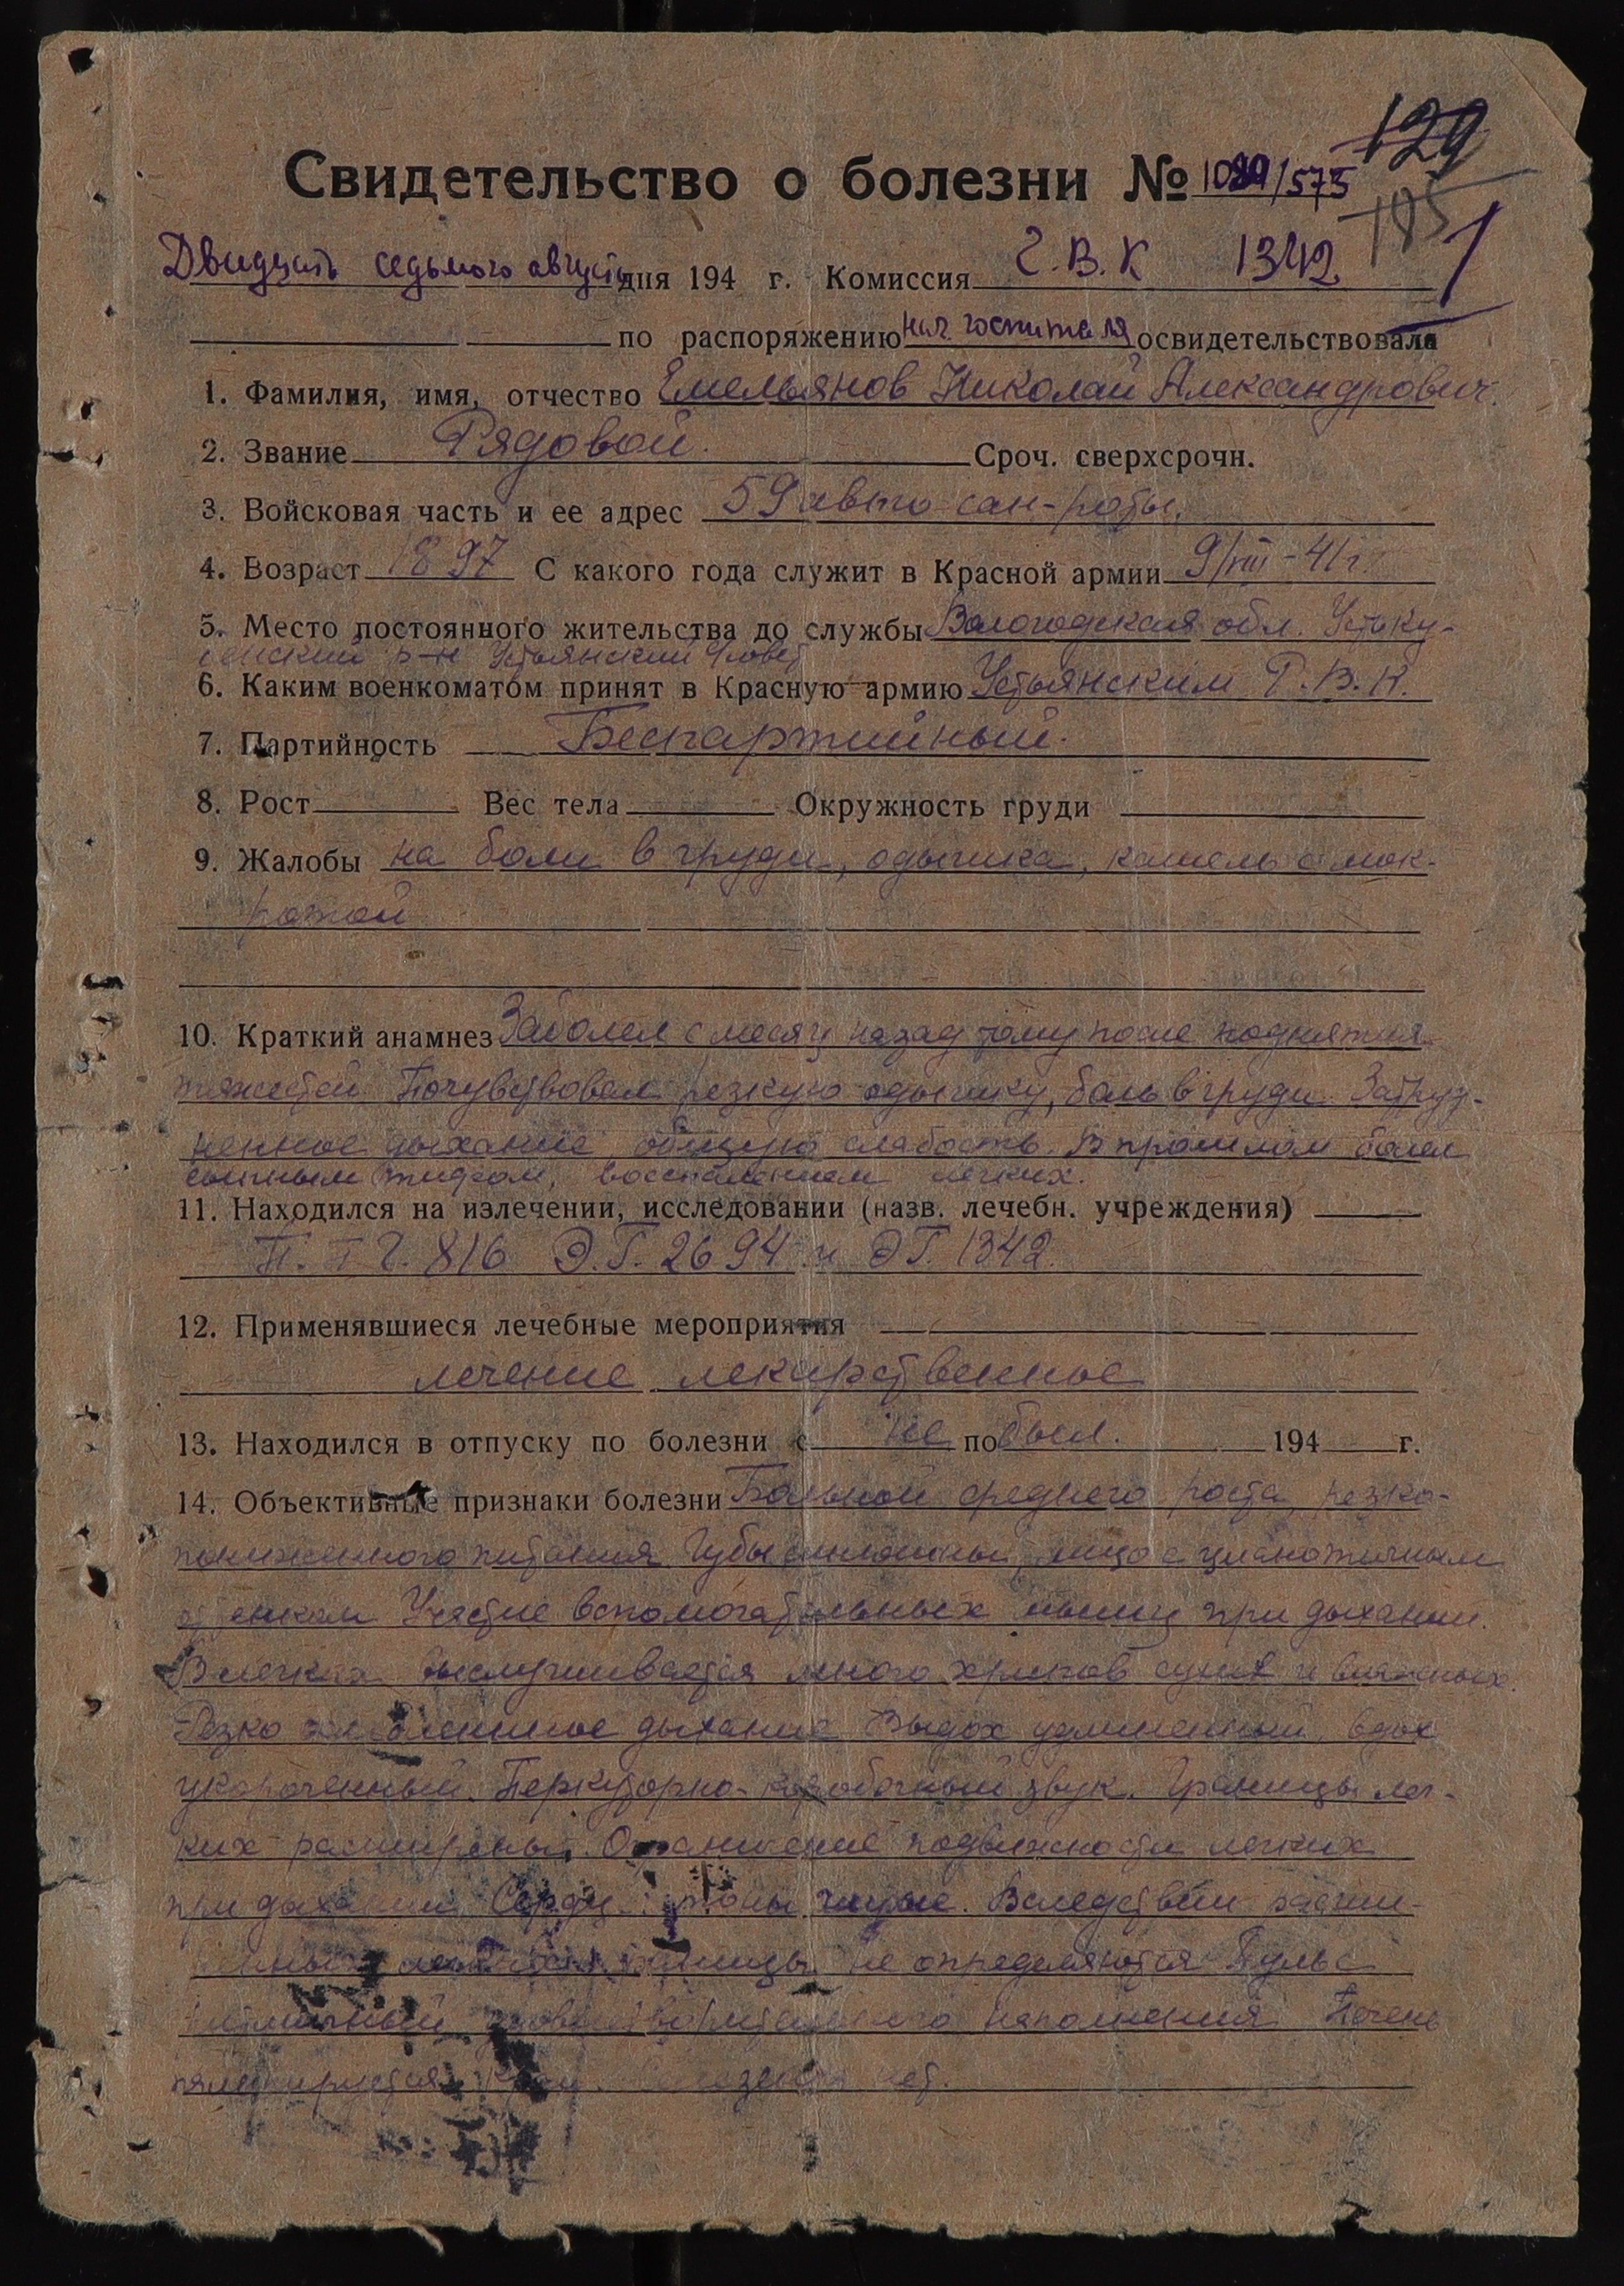 129
Свидетельство о болезни № 1089/575
185
1
Двидцать седьмого августа дня 194 г. Комиссия Г.В.К 1342
по распоряжению нач. госпиталя освидетельствовала
1. Фамилия, имя, отчество Емельянов Николай Александрович.
2. Звание Рядовой. Сроч. сверхсрочн.
3. Войсковая часть и ее адрес 59 авто-сан-роты.
4. Возраст 1897 С какого года служит в Красной армии 9/VIII-41 г.
5. Место постоянного жительства до службы Вологодская обл. Устьку-
бенский р-н Устьянский с/совет
6. Каким военкоматом принят в Красную армию Устьянским Р.В.К.
7. Партийность Беспартийный.
8. Рост Вес тела Окружность груди
9. Жалобы на боли в груди, одышка, кашель с мок-
ротой
10. Краткий анамнез Заболел с месяц назад тому после поднятия
тяжестей Почувствовал резкую одышку, боль в груди. Затруд-
ненное дыхание, общую слабость. В прошлом болел
сыпным тифом, воспалением легких.
11. Находился на излечении, исследовании (назв. лечебн. учреждения)
П.П.Г. 816 Э.Г. 2694 и ЭГ. 1342.
12. Применявшиеся лечебные мероприятия
лечение лекарственное
13. Находился в отпуску по болезни с не по был. 194 г.
14. Объективные признаки болезни Больной среднего роста, резко-
пониженного питания Губы синюшны, лицо с цианотичным
оттенком Участие вспомогательных мышц при дыхании.
В легких выслушивается много хрипов сухих и влажных.
Резко ослабленное дыхание Выдох удлиненный, вдох
укороченный. Перкуторно-коробочный звук. Границы лег-
ких расширены. Ограничение подвижности легких
при дыхании Сердце: тоны чистые. Вследствии расши-
границы не определяются Пульс
ритмичный удовлетворительного наполнения Печень
пальпируется край. нет.